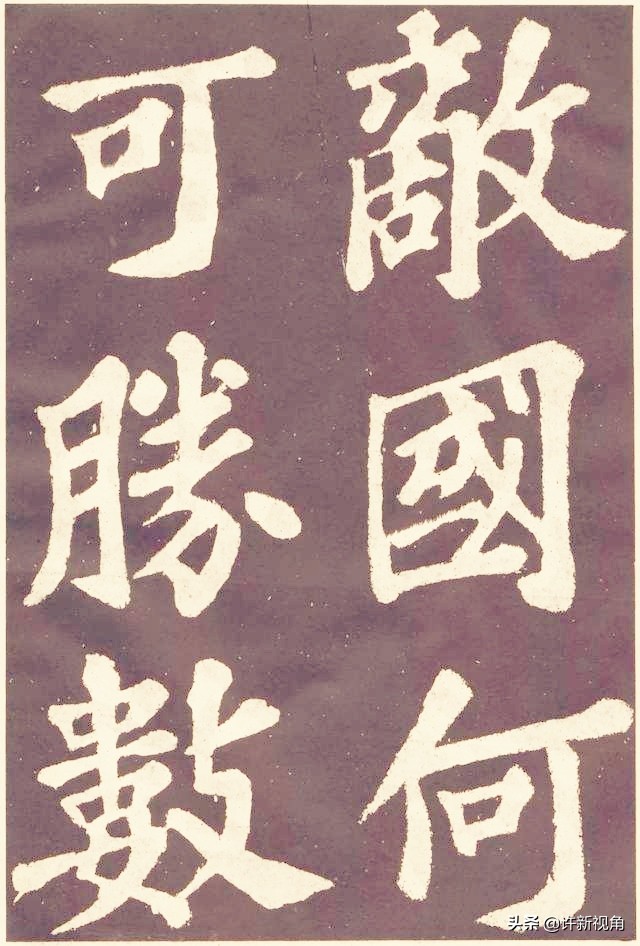 敵國何
可勝數
头条 @许新视角